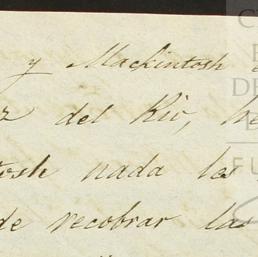 y Mackintosh
del Rio, he
tosh nada les
de recobrar las